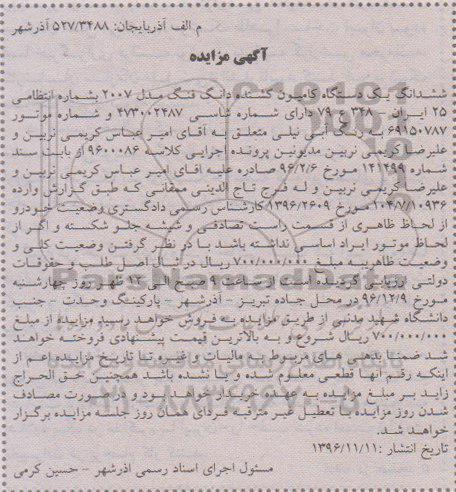 م الف آذربایجان: ۵۲۷/۳۴۸۸ آذرشهر
آگهی مزایده
ششدانگ یک دستگاه کامیون کشنده دانگ فنگ مدل ۲۰۰۷ بشماره انتظامی
۲۵ ایران – ۳۴۸ ع ۷۹ دارای شماره شاسی ۴۷۳۰۰۲۴۸۷ و شماره موتور
۶۹۱۵۰۷۸۷ با رنگ آبی نیلی متعلق به آقای امیر عباس کریمی نربین و
علیرضا کریمی نربین مدیونین پرونده اجرایی کلاسه ۹۶۰۰۰۸۶ از بابت سند
شماره ۱۴۱۴۹۹ مورخ ۹۶/۲/۶ صادره علیه آقای امیر عباس کریمی نربین و
علیرضا کریمی نربین و له فرج تاج الدینی ممقانی که طبق گزارش وارده
۱۰۴/۷/۱۰۹۳۶ مورخ ۱۳۹۶/۲۶۰۹ کارشناس رسمی دادگستری وضعیت خودرو
از لحاظ ظاهری از قسمت راست تصادفی و شیشه جلو شکسته و اگر از
لحاظ موتور ایراد اساسی نداشته باشد با در نظر گرفتن وضعیت کلی و
وضعیت ظاهر به مبلغ ۷۰۰/۰۰۰/۰۰۰ ریال در قبال اصل طلب و حقوقات
دولتی ارزیابی گردیده است از ساعت ۹ صبح الی ۱۲ ظهر روز چهارشنبه
مورخ ۹۶/۱۲/۹ در محل جاده تبریز – آذرشهر – پارکینگ وحدت – جنب
دانشگاه شهید مدنی از طریق مزایده به فروش خواهد رسید مزایده از مبلغ
۷۰۰/۰۰۰/۰۰۰ ریال شروع و به بالاترین قیمت پیشنهادی فروخته خواهد
شد ضمنا بدهی های مربوط به مالیات و غیره تا تاریخ مزایده اعم از
اینکه رقم آنها قطعی معلوم شده و یا نشده باشد همچنین حق الحراج
زاید بر مبلغ مزایده به عهده خریدار خواهد بود و در صورت مصادف
شدن روز مزایده با تعطیل غیر مترقبه فردای همان روز جلسه مزایده برگزار
خواهد شد.
تاریخ انتشار: ۱۳۹۶/۱۱/۱۱
مسئول اجرای اسناد رسمی آذرشهر – حسین کرمی
ParsNamadData